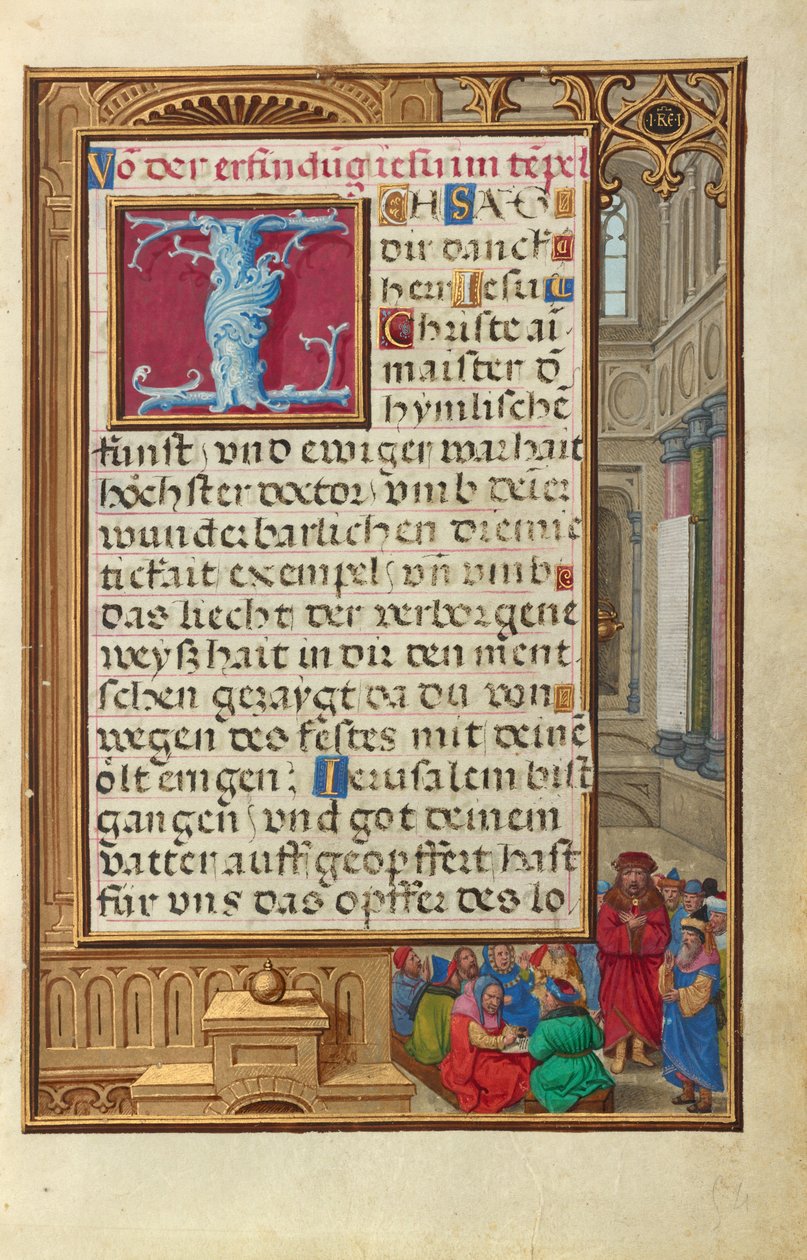 Võ der erfindũg iesu im tẽpel
ICH SAG
dir danck
herr Iesu
Christe ai
maister d̃
hymlischẽ
kunst, vnd ewiger warhait
höchster doctor, vmb deiẽr
wunderbarlichen diemie
tickait exempel, vñ vmb
das liecht der verborgenẽ
weyßhait in dir den ment
schen gezaygt da du von
wegen des festes mit deinẽ
ölternigen; Ierusalem bist
gangen, vnd got deinem
vatter auff geopffert hast
für vns das opffer des lo